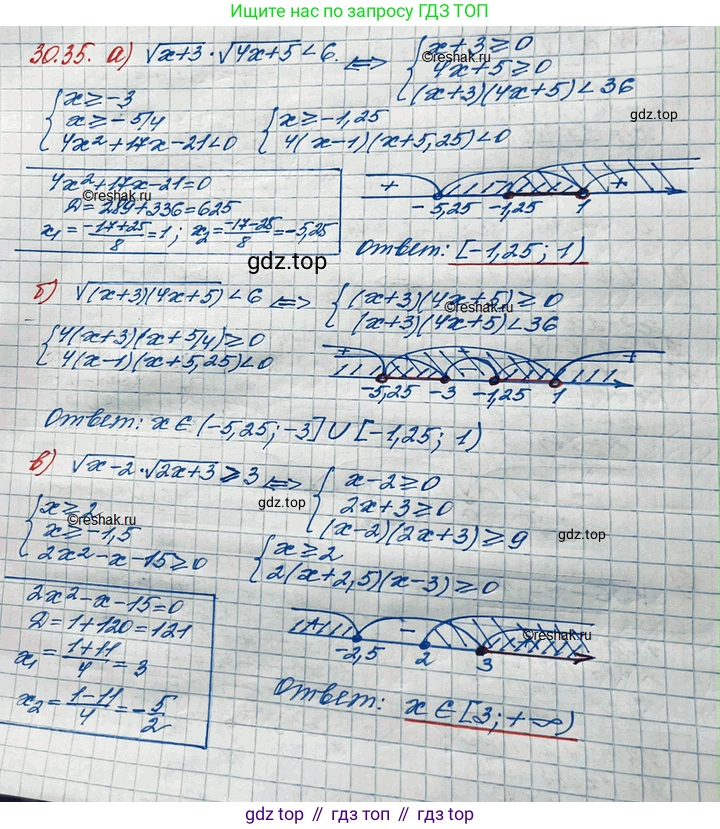 Ищите нас по запросу ГДЗ ТОП
30.35. а) √x+3 · √4x+5 < 6. ⇔ { x+3 ≥ 0
4x+5 ≥ 0
(x+3)(4x+5) < 36
©reshak.ru
gdz.top
{ x ≥ -3
x ≥ -5/4
4x²+17x-21<0
{ x ≥ -1,25
4(x-1)(x+5,25)<0
4x²+17x-21=0
©reshak.ru
D = 289+336=625
x₁ = (-17+25)/8 = 1; x₂ = (-17-25)/8 = -5,25
+ +
-5,25 -1,25 1
Ответ: [-1,25; 1)
gdz.top
б) √(x+3)(4x+5) < 6 ⇔ { (x+3)(4x+5) ≥ 0
(x+3)(4x+5) < 36
©reshak.ru
{ 4(x+3)(x+5/4) ≥ 0
4(x-1)(x+5,25)<0
+ - +
-5,25 -3 -1,25 1
Ответ: x ∈ (-5,25; -3] ∪ [-1,25; 1)
в) √x-2 · √2x+3 ≥ 3 ⇔ { x-2 ≥ 0
2x+3 ≥ 0
(x-2)(2x+3) ≥ 9
gdz.top
{ x ≥ 2
x ≥ -1,5
2x²-x-15 ≥ 0
©reshak.ru
gdz.top
{ x ≥ 2
2(x+2,5)(x-3) ≥ 0
2x²-x-15=0
D = 1+120=121
x₁ = (1+11)/4 = 3
x₂ = (1-11)/4 = -5/2
+ - +
©reshak.ru
-2,5 2 3
Ответ: x ∈ [3; +∞)
gdz.top // гдз топ // gdz.top